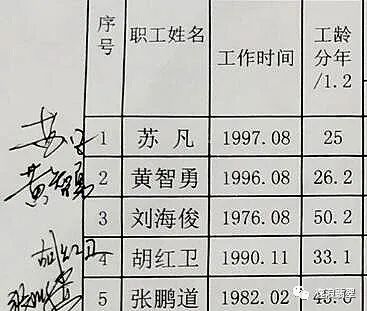 序号 职工姓名 工作时间 工龄分年/1.2
苏 1 苏凡 1997.08 25
黄智勇 2 黄智勇 1996.08 26.2
3 刘海俊 1976.08 50.2
胡红卫 4 胡红卫 1990.11 33.1
5 张鹏道 1982.02